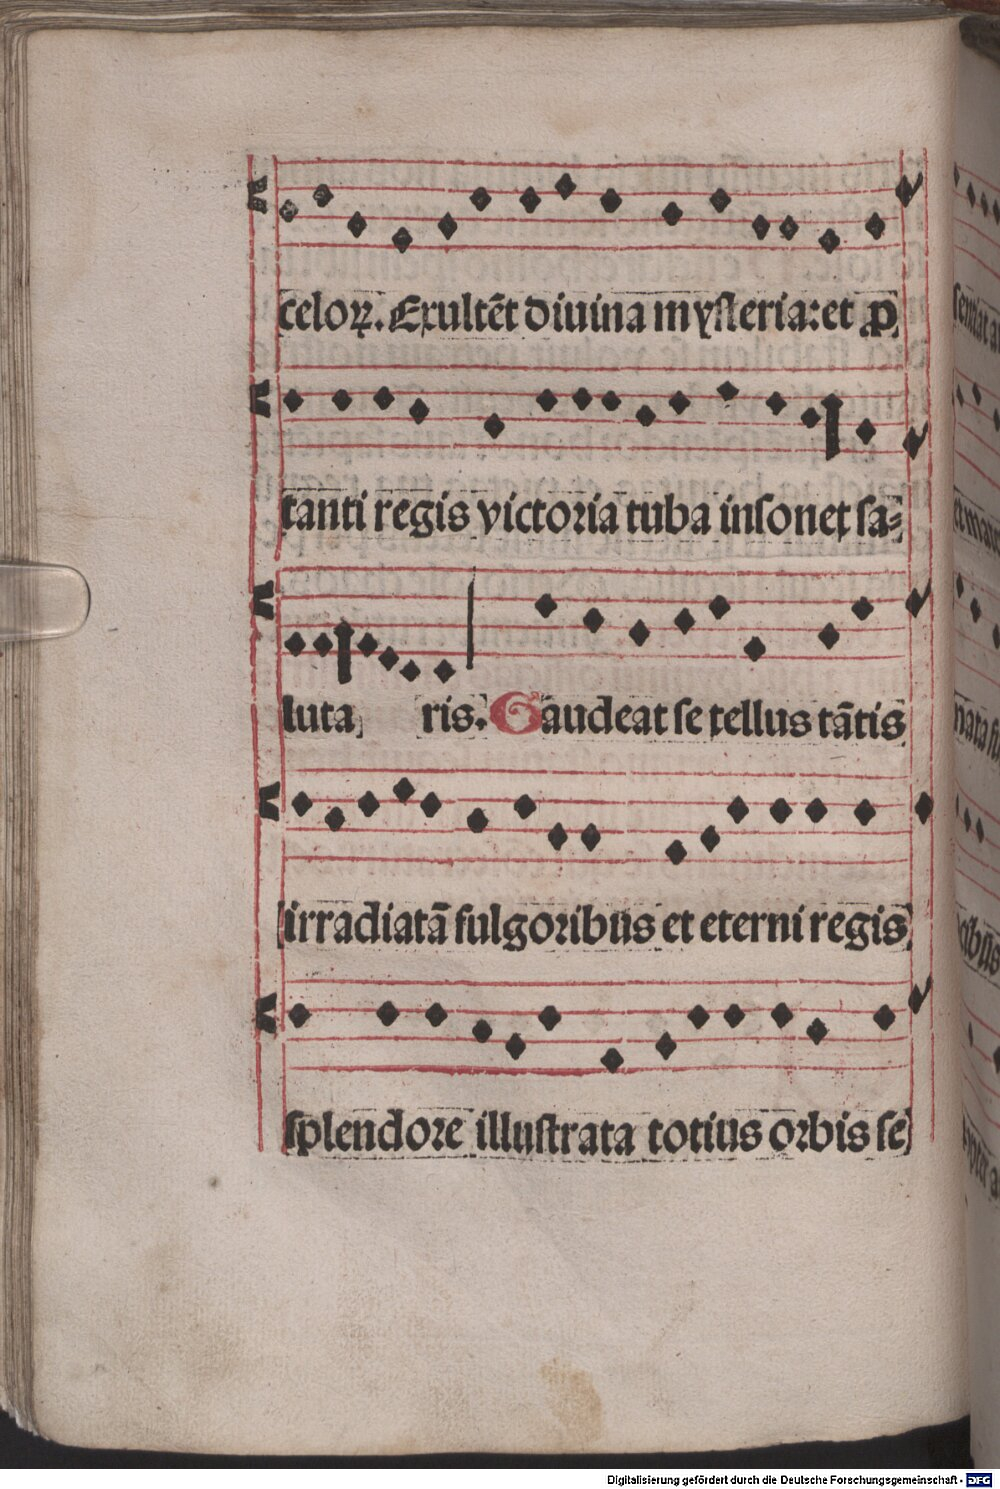 celoꝝ. Exultēt divina mysteria: et ꝓ
tanti regis victoria tuba insonet sa⸗
luta ris. Gaudeat se tellus tātis
irradiatā fulgoribus et eterni regis
splendore illustrata totius orbis se
Digitalisierung gefördert durch die Deutsche Forschungsgemeinschaft - DFG